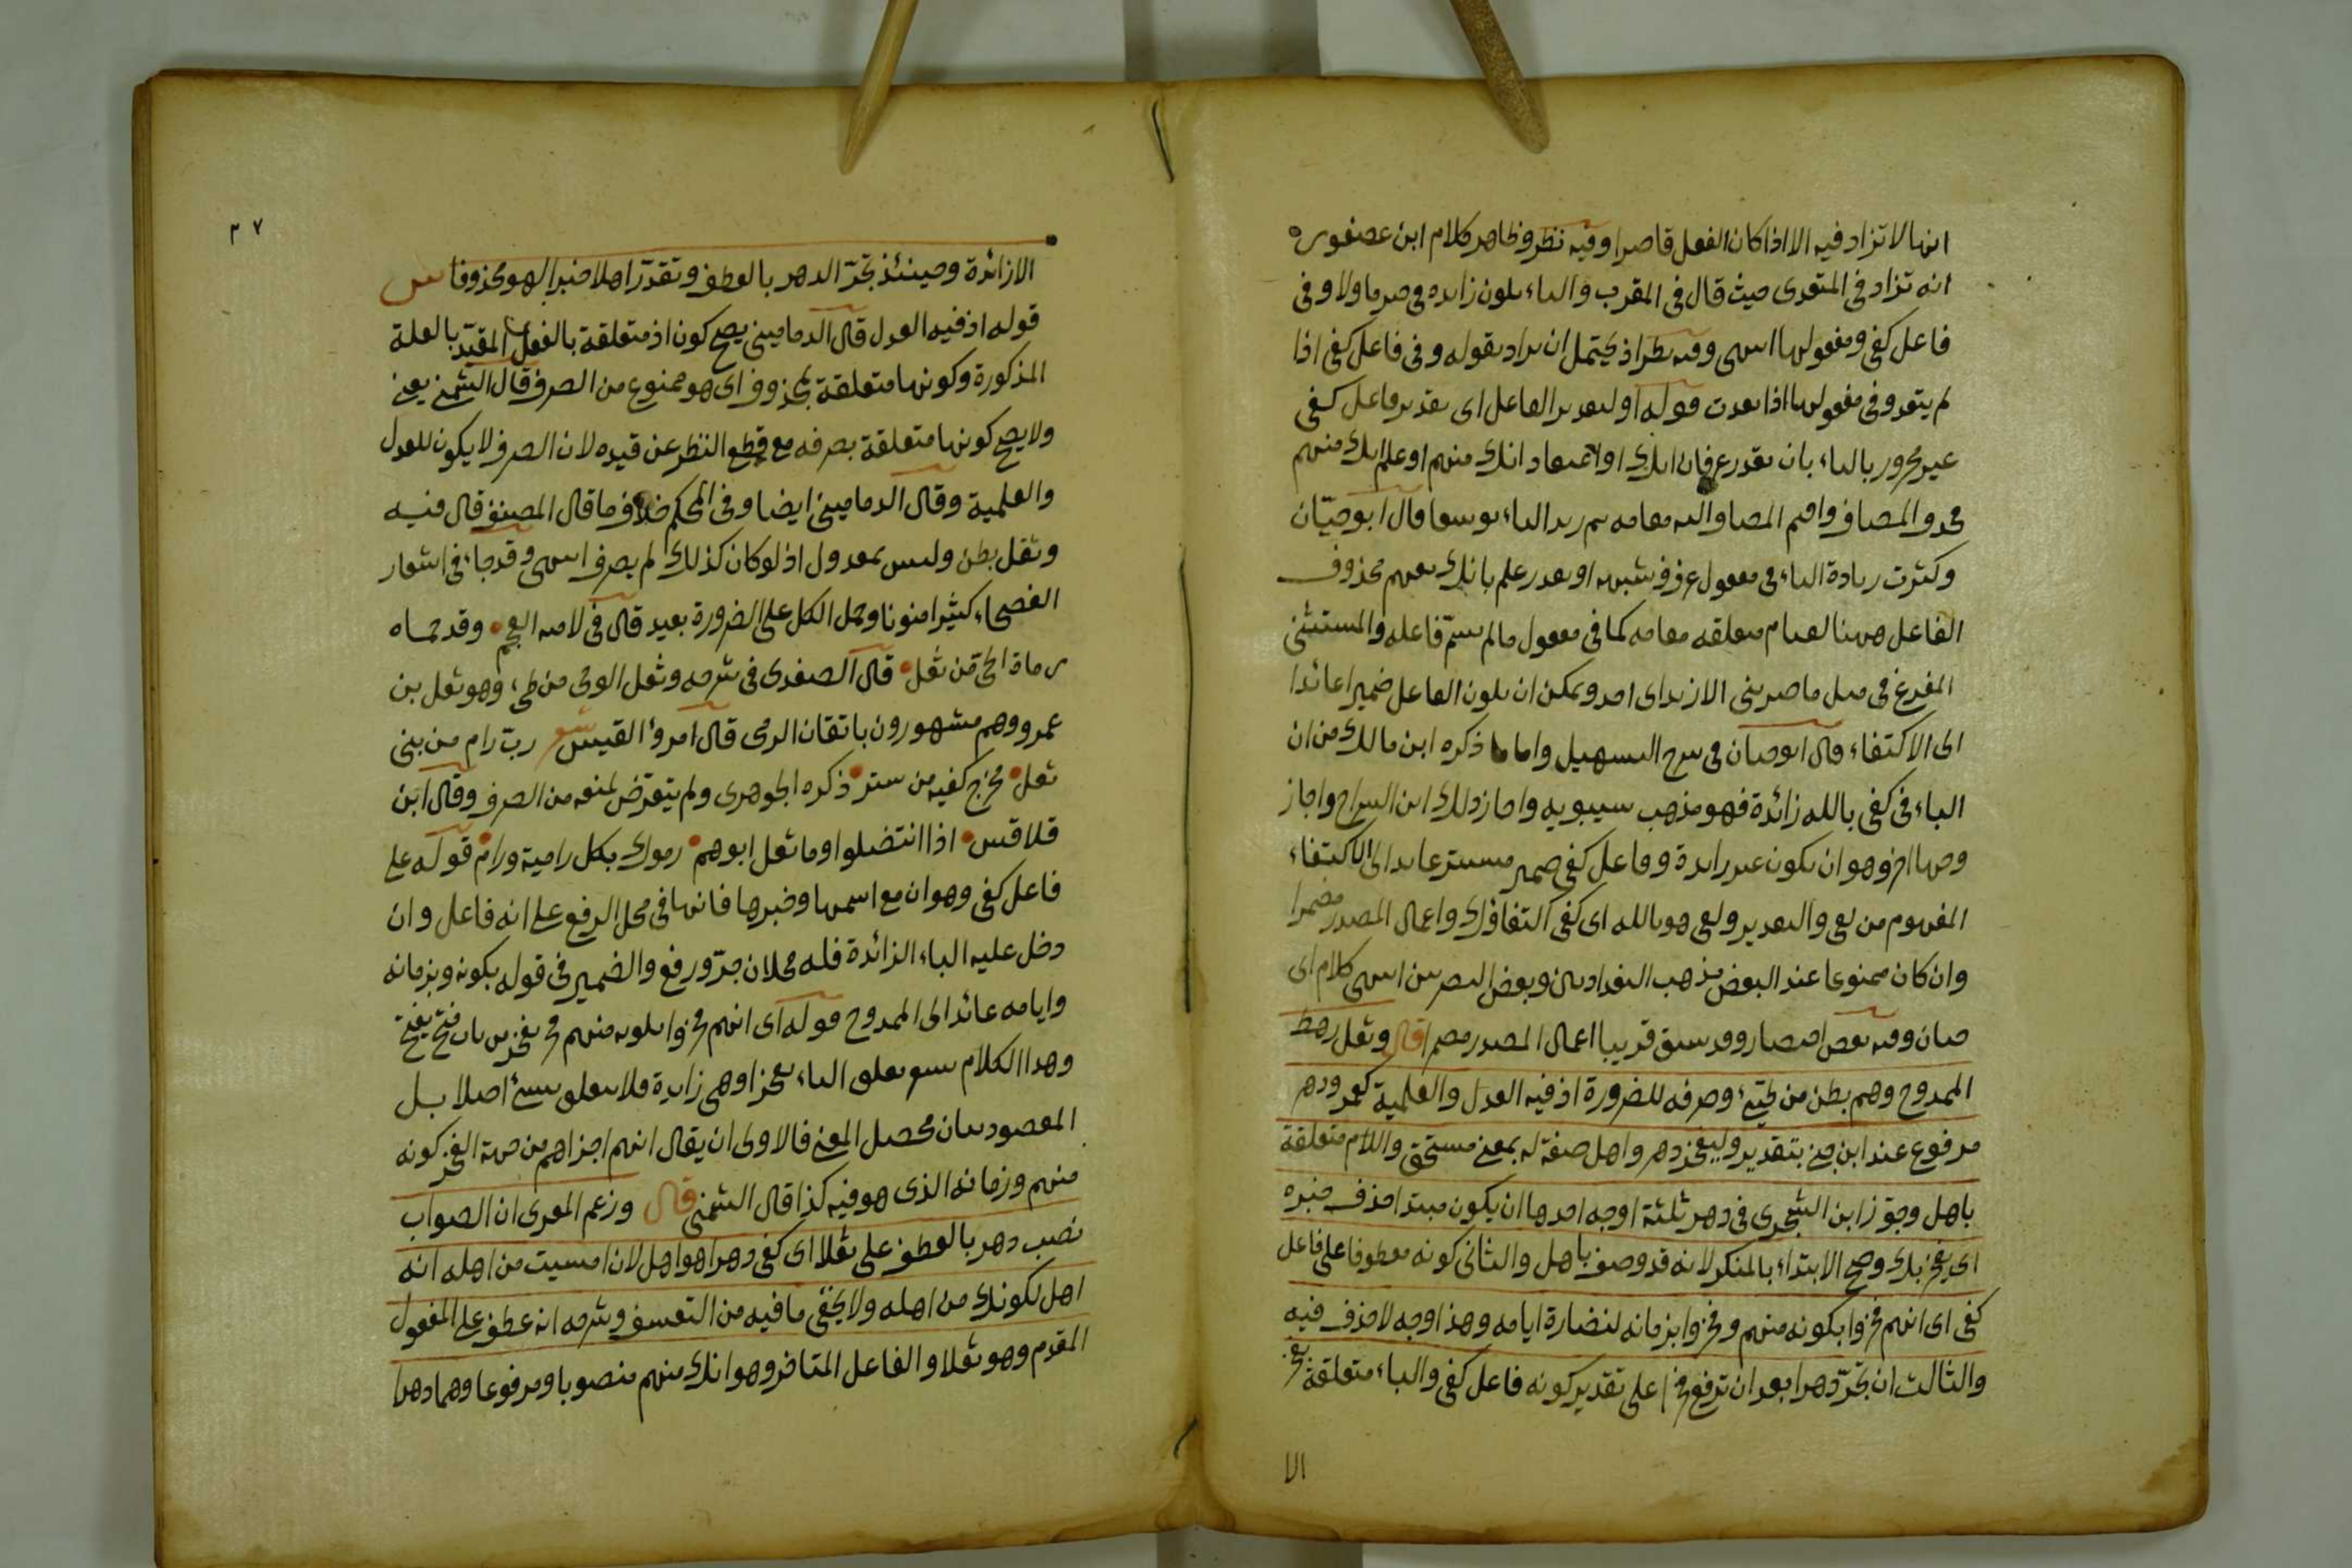 انها لا تزاد فيه الا اذا كان الفعل قاصرا وفيه نظر وظاهر كلام ابن عصفور
انه تزاد فى المتعدى حيث قال فى المقرب والباء يكون زايده فى خبر ما ولا وفى
فاعل كفى ومفعولها انتهى وفيه نظر اذ يحتمل ان يراد بقوله وفى فاعل كفى اذا
لم يتعد وفى مفعولها اذا تعدت قوله او لتقدير الفاعل اى تقدير فاعل كفى
غير مجرور بالباء بان يقدر انك منهم او علم انك منهم
المضاف واقيم المضاف اليه مقامه ثم زيد الباء توسعا قال ابو حيّان
وكثرت زيادة الباء فى مفعول عرف وشبهه او يقدر علم بانك منهم محذوف
الفاعل ههنا لقيام متعلقه مقامه كما فى مفعول ما لم يسمّ فاعله والمستثنى
المفرغ فى مثل ما ضربنى الا زيد اى احد ويمكن ان يكون الفاعل ضميرا عائدا
الى الاكتفاء قال ابو حيان فى شرح التسهيل واما ما ذكره ابن مالك من ان
الباء فى كفى بالله زائدة فهو مذهب سيبويه واجاز ذلك ابن السراج واجاز
وجها اخر وهو ان يكون غير زايدة وفاعل كفى ضمير مستتر عايد الى الاكتفاء
المفهوم من كفى والتقدير وكفى هو بالله اى كفى اكتفاؤك واعمال المصدر مضمرا
وان كان ممنوعا عند البعض مذهب البغداديين وبعض البصريين انتهى كلام ابى
حيان وفيه بعض اختصار وقد سبق قريبا اعمال المصدر مضمرا قال وثعل رهط
الممدوح وهم بطن من طيّئ وصرفه للضرورة اذ فيه العدل والعلمية كعمر ودهر
مرفوع عند ابن جنى بتقدير وليفخر دهر واهل صفة له بمعنى مستحق واللام متعلقة
باهل وجوّز ابن الشجرى فى دهر ثلثة اوجه احدها ان يكون مبتدا حذف خبره
اى يفخر بك وصح الابتداء بالمنكر لانه قد وصف باهل والثانى كونه معطوفا على فاعل
كفى اى انهم فخروا بكونه منهم وفخروا بزمانه لنضارة ايامه وهذا وجه لا حذف فيه
والثالث ان تجرّ دهرا بعد ان ترفع فخرا على تقدير كونه فاعل كفى والباء متعلقة بفخر
الا
٣٧
الا زائدة وحينئذ تجرّ الدهر بالعطف وتقدّر اهلا خبرا لهو محذوفا س
قوله اذ فيه العدل قال الدمامينى يصح كون اذ متعلقة بالفعل المقيّد بالعلة
المذكورة وكونها متعلقة بمحذوف اى هو ممنوع من الصرف قال الشمنى يعنى
ولا يصح كونها متعلقة بصرفه مع قطع النظر عن قيده لان الصرف لا يكون للعدل
والعلمية وقال الدمامينى ايضا وفى المحكم خلاف ما قال المصنف قال فيه
وثعل بطن وليس بمعدول اذ لو كان كذلك لم يصرف انتهى وقد جاء فى اشعار
الفصحاء كثيرا منونا وحمل الكل على الضرورة بعيد قال فى لامية العجم وقد حماه
رماة الحىّ من ثعل قال الصفدى فى شرحه وثعل ابو حى من طى وهو ثعل بن
عمرو وهم مشهورون باتقان الرمى قال امرؤ القيس شعر ربّ رام من بنى
ثعل مخرج كفيه من ستر ذكره الجوهرى ولم يتعرّض لمنعه من الصرف وقال ابن
قلاقس اذا انتضلوا وما ثعل ابوهم رموك بكل رامية ورام قوله على
فاعل كفى وهو ان مع اسمها وخبرها فانها فى محل الرفع على انه فاعل وان
دخل عليه الباء الزائدة فله محلان جرّ ورفع والضمير فى قوله بكونه وبزمانه
وايامه عائد الى الممدوح قوله اى انهم فخروا بكونه منهم فخر يفخر من باب فتح يفتح
وهذا الكلام يشعر بتعلق الباء بفخرا وهى زايدة فلا يتعلق بشئ اصلا بل
المقصود بيان محصل المعنى فالاولى ان يقال انهم اجزاهم من جهة الفخر كونه
منهم وزمانه الذى هو فيه كذا قال الشمنى قال وزعم المعرى ان الصواب
نصب دهر بالعطف على ثعلا اى كفى دهرا هو اهل لان امسيت من اهله انه
اهل لكونك من اهله ولا يخفى ما فيه من التعسف وشرحه انه عطف على المفعول
المقدم وهو ثعلا والفاعل المتاخر وهو انك منهم منصوبا ومرفوعا وهما دهرا